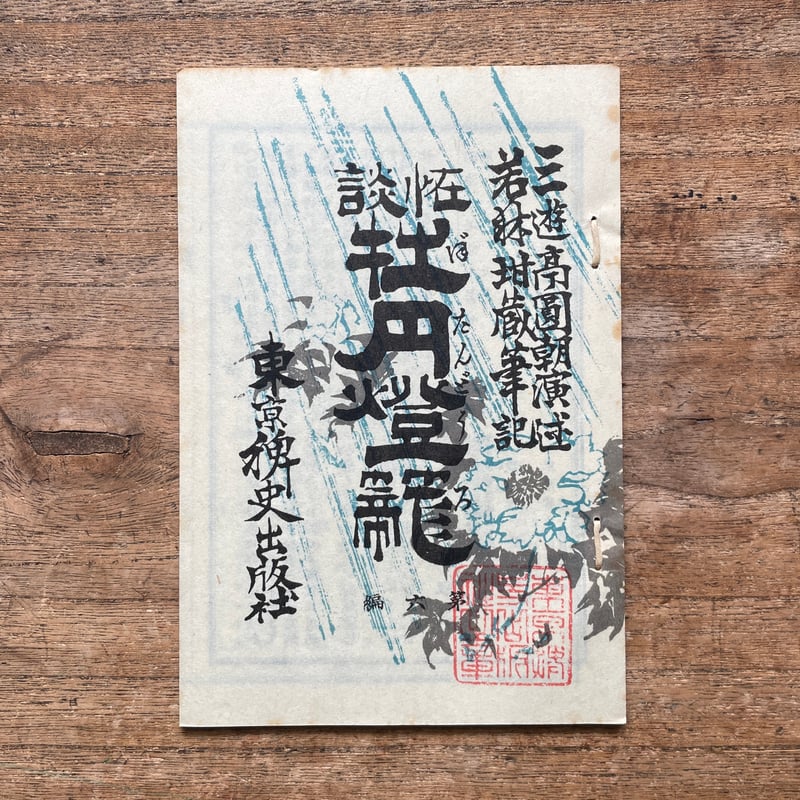 三遊亭圓朝演述
若林玵蔵筆記
恠談
牡丹燈籠
ぼたんどうろ
第六編
東京稗史出版社